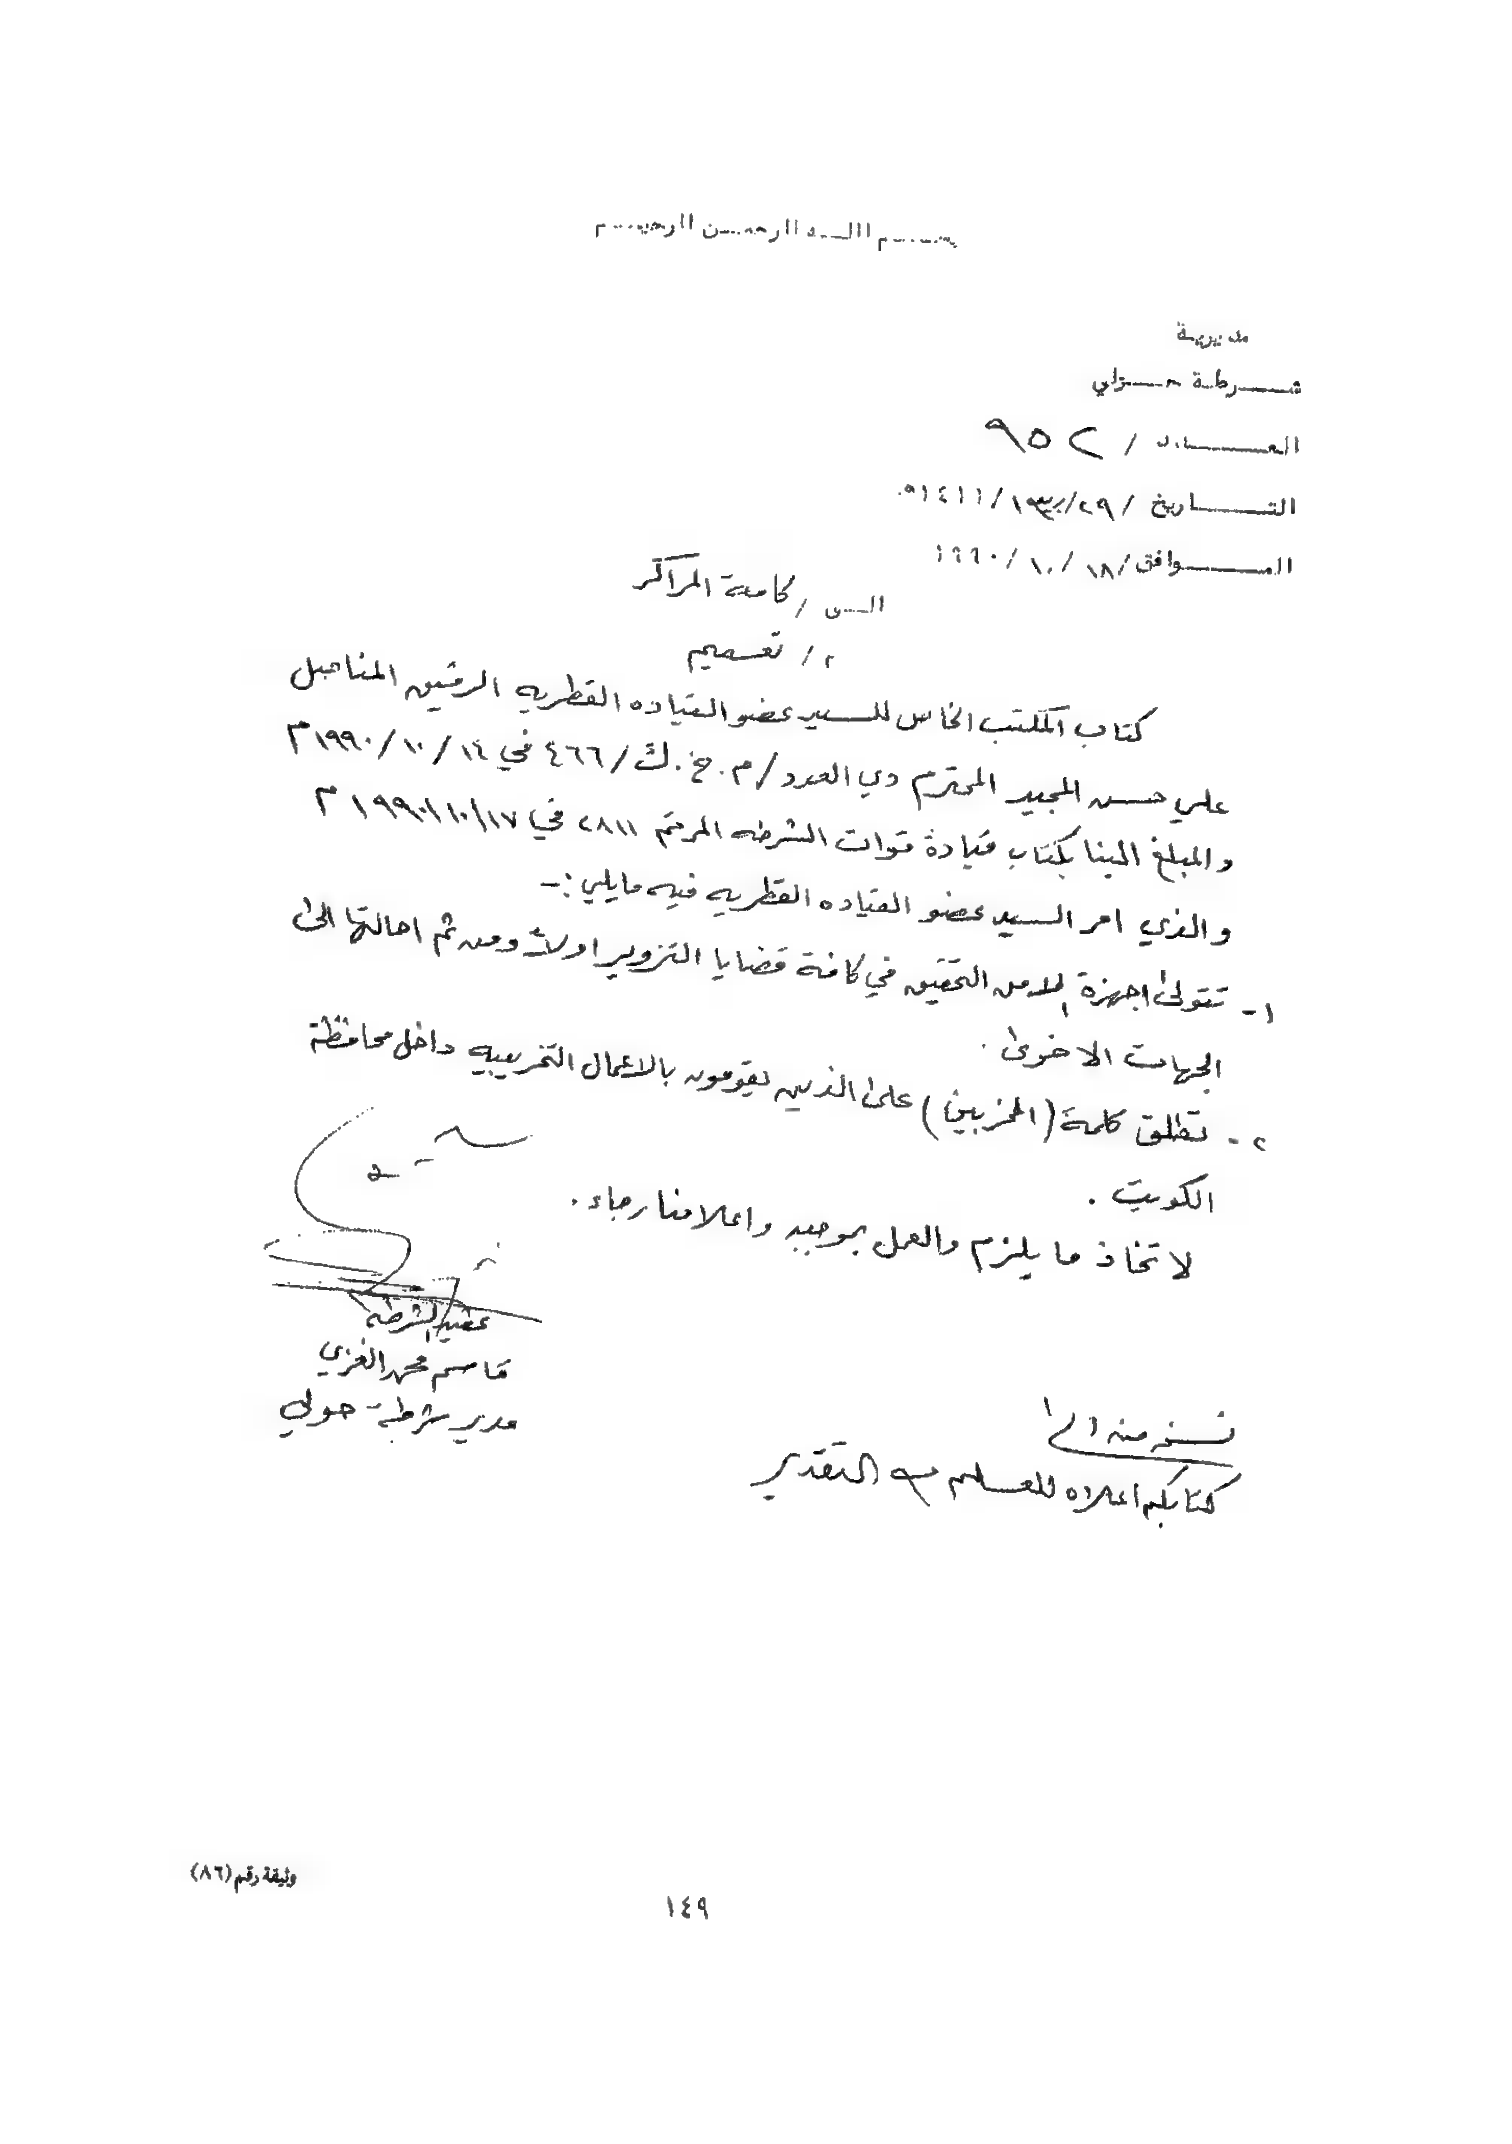 بسم الله الرحمن الرحيم
مديرية
شرطة حولي
العدد / ٩٥٢
التاريخ / ٢٩/ربيع١/١٤١١هـ
الموافق/ ١٨/ ١٠/ ١٩٩٠
الى / كافة المراكز
م/ تعميم
كتاب المكتب الخاص للسيد عضو القياده القطريه الرفيق المناضل
علي حسن المجيد المحترم ذي العدد/م.خ.ك/٤٦٦ في ١٤/ ١٠/ ١٩٩٠م
والمبلغ الينا بكتاب قيادة قوات الشرطه المرقم ٢٨١١ في ١٩٩٠/١٠/١٧ م
والذي امر السيد عضو القياده القطريه فيه مايلي :-
١- تتولى اجهزة الامن التحقيق في كافة قضايا التزوير اولاً ومن ثم احالتها الى
الجهات الاخرى .
٢- تطلق كلمة (المخربين) على الذين يقومون بالاعمال التخريبيه داخل محافظة
الكويت .
لاتخاذ ما يلزم والعمل بموجبه واعلامنا رجاء .
عقيد الشرطه
قاسم محمد الغزي
مدير شرطة حولي
نسخه منه الى
كتابكم اعلاه للعلم مع التقدير
وثيقة رقم (٨٦)
١٤٩